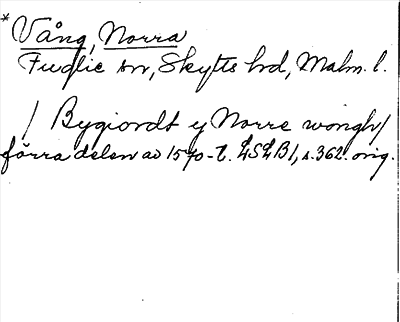 * Vång, Norra
Fuglie sn, Skytts hd, Malm. l.
/ Bygiordt y Norre wongh /
förra delen av 1570-t. LSLB1, s. 362. orig.